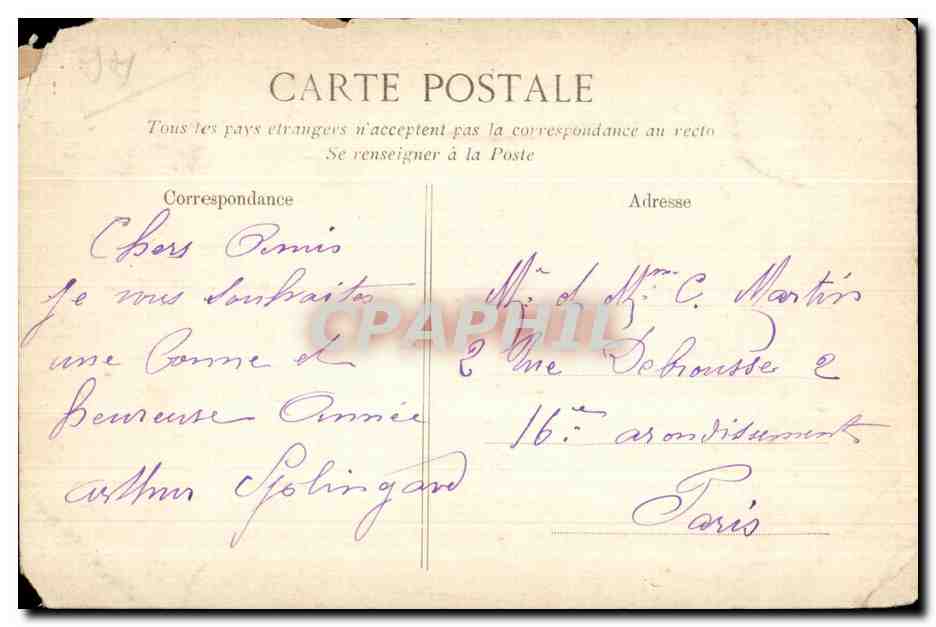 CARTE POSTALE
Tous les pays etrangers n'acceptent pas la correspondance au recto
Se renseigner à la Poste
Correspondance
Chers Amis
je vous souhaites
une bonne et
heureuse Année
arthur
Adresse
Mr. et Mme. C. Martin
2 Rue Debrousse 2
16.e arondissement
Paris
CPAPHIL